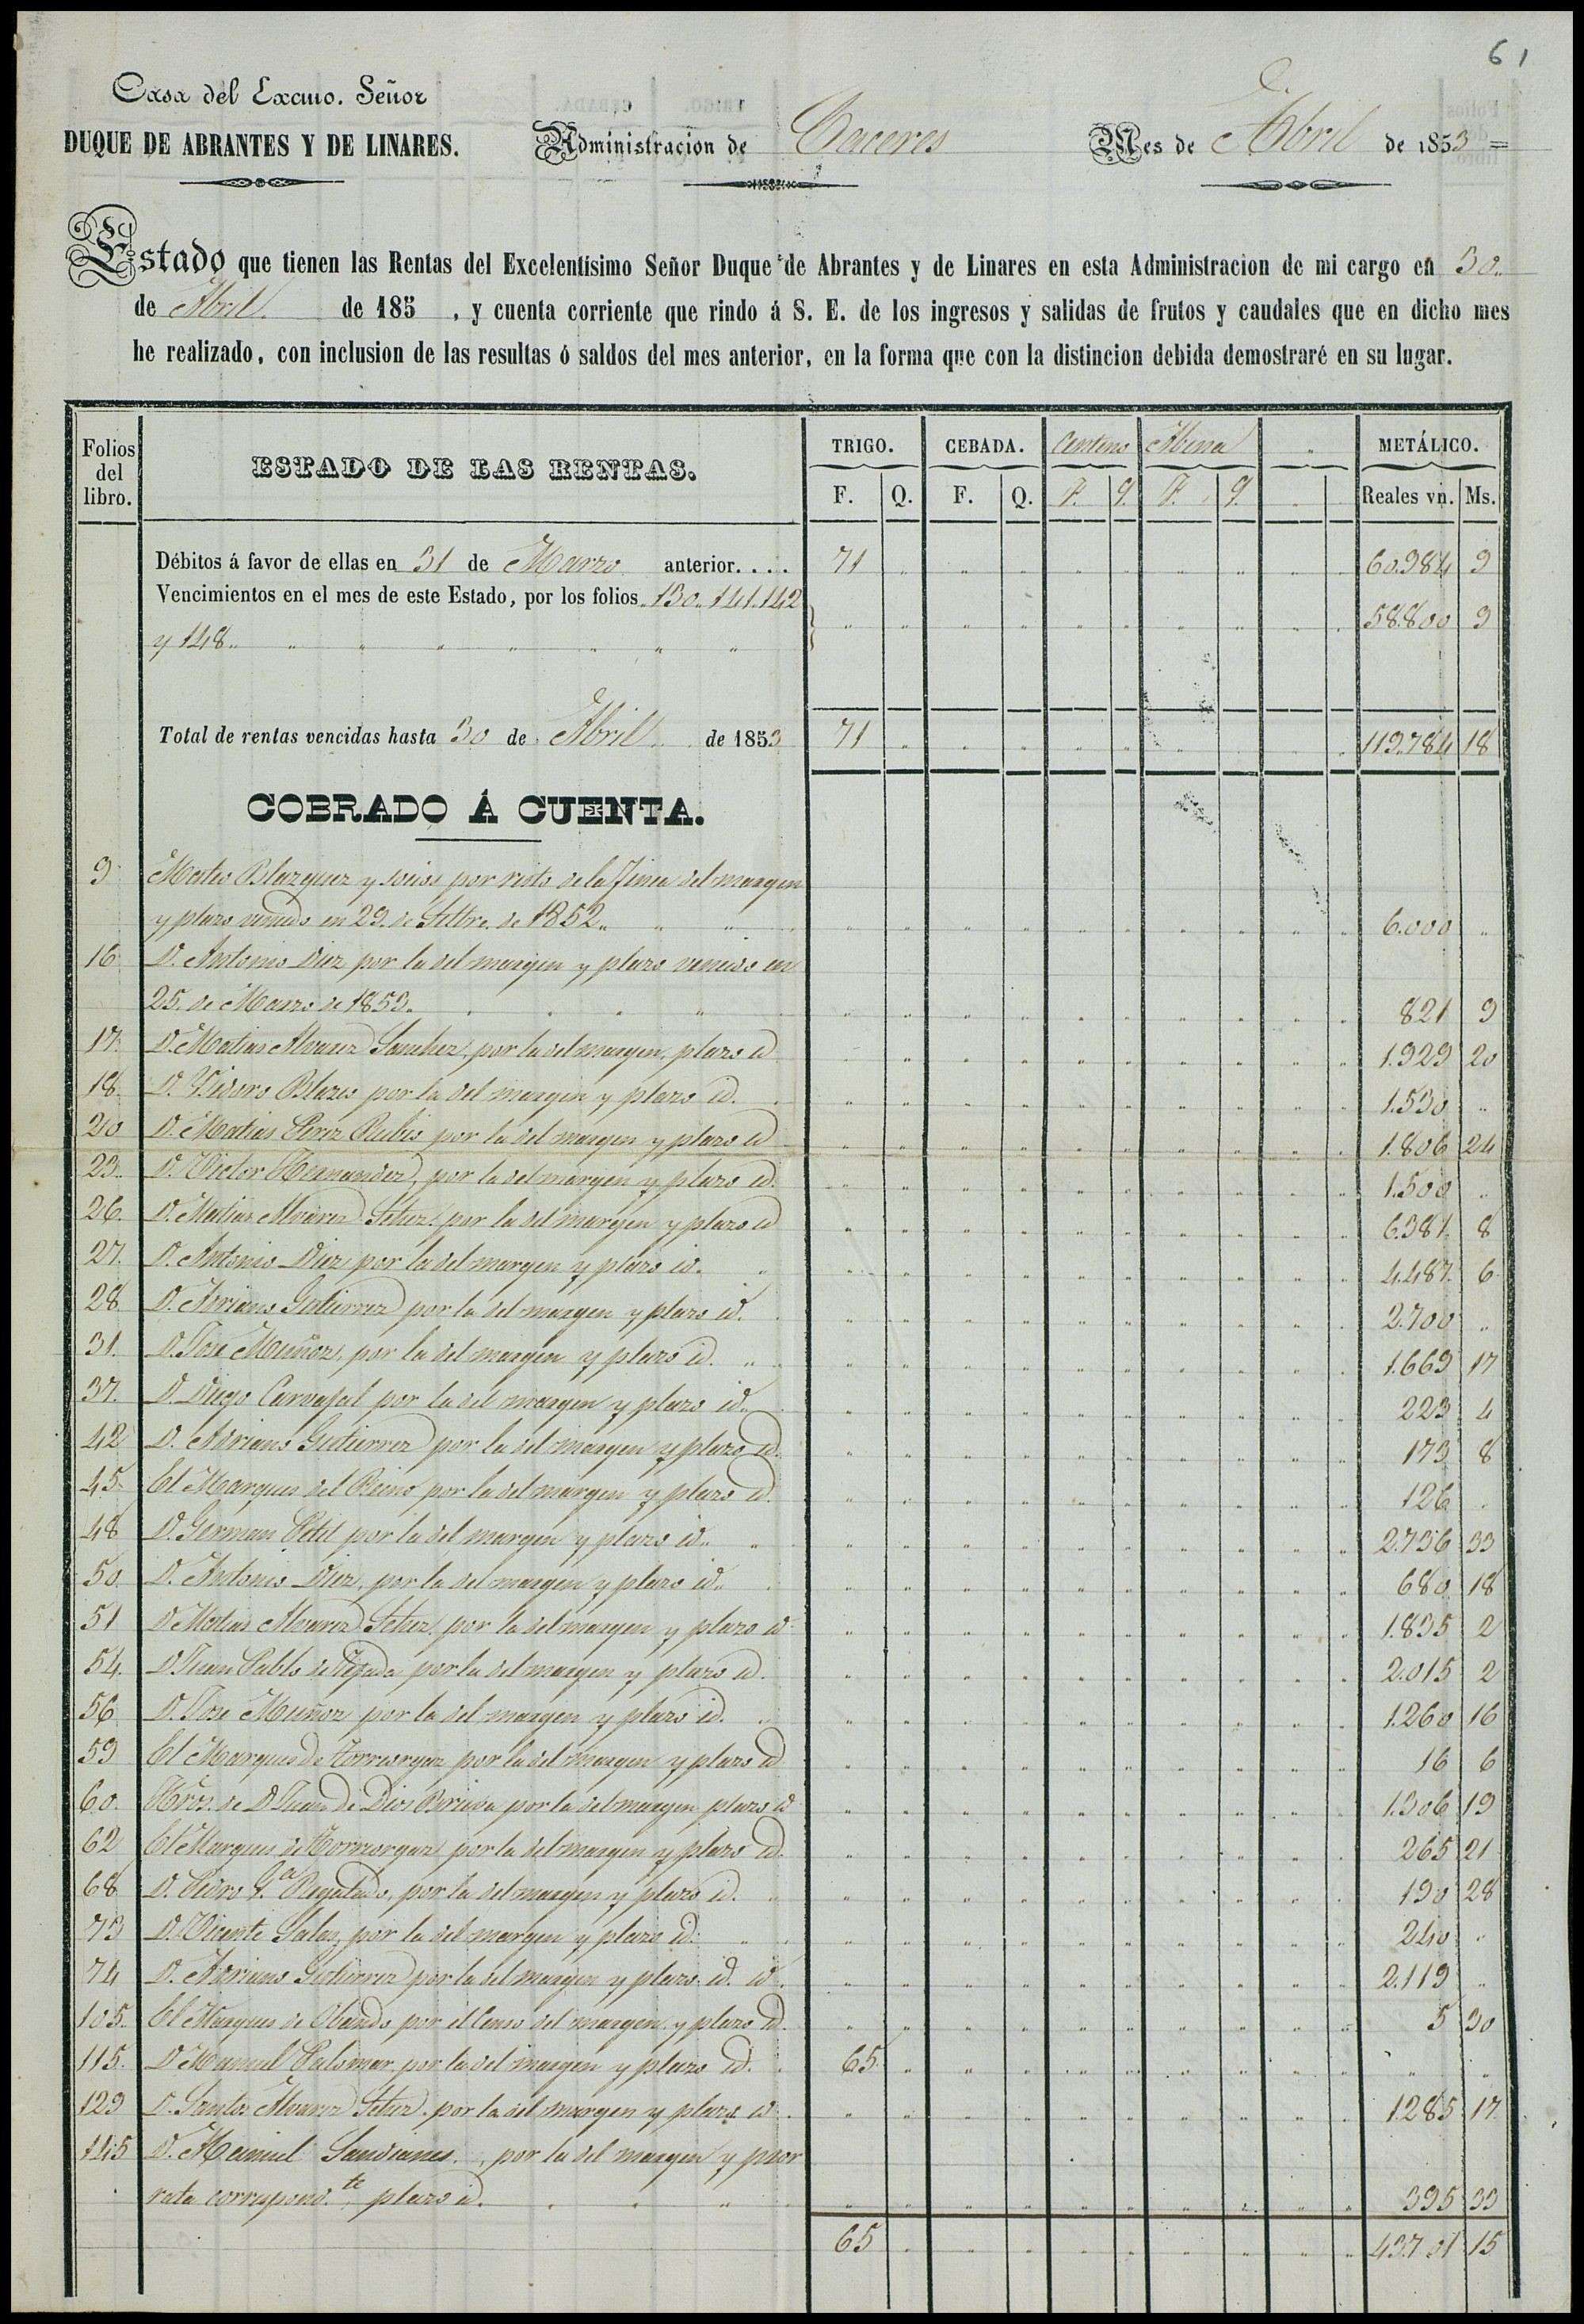 61
Casa del Excmo. Señor
DUQUE DE ABRANTES Y DE LINARES.
Administracion de Caceres
Mes de Abril de 1853=
Estado que tienen las Rentas del Excelentísimo Señor Duque de Abrantes y de Linares en esta Administracion de mi cargo en 30..
de Abril. de 185 , y cuenta corriente que rindo á S. E. de los ingresos y salidas de frutos y caudales que en dicho mes
he realizado, con inclusion de las resultas ó saldos del mes anterior, en la forma que con la distincion debida demostraré en su lugar.
Folios del libro. ESTADO DE LAS RENTAS. TRIGO. CEBADA. Centeno Abena METÁLICO.
F. Q. F. Q. F. q. F. q. Reales vn. Ms.
Débitos á favor de ellas en 31 de Marzo anterior.... 71 60.984 9
Vencimientos en el mes de este Estado, por los folios 130.. 141.142
y 148.. 58.800 9
Total de rentas vencidas hasta 30 de Abril de 1853 71 119.784 18
COBRADO Á CUENTA.
9 Mateo Blazquez y socios por resto de la finca del margen
y plazo vencido en 29. de Setbre. de 1852.. 6.000 ..
16 D. Antonio Diez por la del margen y plazo vencido en
25. de Marzo de 1853. 821 9
17. D. Matias Alvarez Sanchez, por la del margen, plazo id 1.929 20
18. D. Ysidoro Blazco por la del margen y plazo id. 1.530 ..
20 D. Matias Perez Rubio por la del margen y plazo id 1.806 24
23.. D. Victor Hernandez, por la del margen y plazo id. 1.500 ..
26. D. Matias Alvarez Schez. por la del margen y plazo id 6.381. 8
27. D. Antonio Diez por la del margen y plazo id. 4.487. 6
28. D. Adriano Gutierrez por la del margen y plazo id. 2.700 ..
31. D. Jose Muñoz, por la del margen y plazo id. 1.669 17
37. D. Diego Carvajal por la del margen y plazo id.. 223 4
42 D. Adriano Gutierrez por la del margen y plazo id. 173 8
45. El Marques del Reino por la del margen y plazo id. 126 .
48 D. German Petit por la del margen y plazo id.. 2.736 33
50. D. Antonio Diez, por la del margen y plazo id.. 680 18
51 D. Matias Alvarez Schez. por la del margen y plazo id 1.835 2
54. D. Juan Pablo de Tejada por la del margen y plazo id. 2.015 2
56 D. Jose Muñoz por la del margen y plazo id. 1.260 16
59 El Marques de Torreorgaz por la del margen y plazo id 16 6
60. Hros. de D. Juan de Dios Brieva por la del margen plazo id 1.306 19
62 El Marques de Torreorgaz por la del margen y plazo id. 265 21
68 D. Pedro Ga. Regalado, por la del margen y plazo id. 190 28
73 D. Vicente Salas, por la del margen y plazo id. 240 ..
74 D. Adriano Gutierrez por la del margen y plazo id. id. 2.119 ..
105.. El Marques de Obando por el Censo del margen y plazo id. 5 30
115. D. Manuel Palomar por la del margen y plazo id. 65. ..
129 D. Santos Alvarez Schez. por la del margen y plazo id. 1.285 17
145 D. Manuel por la del margen y pror
rata correspond.te plazo id. 395 33
65 43.701 15